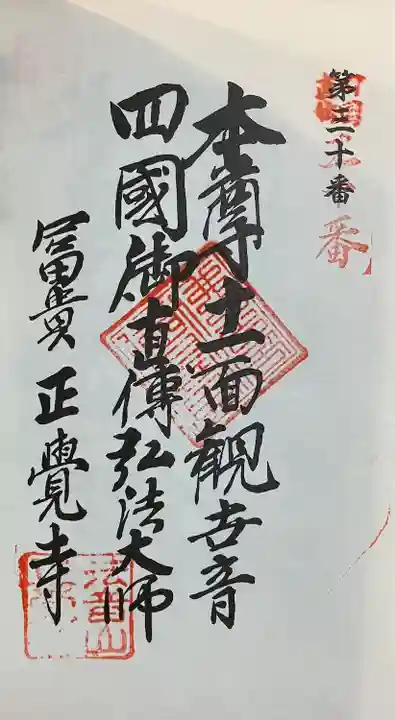 第二十番
番
本尊十一面観世音
四國御直傳弘法大師
冨貴正覺寺